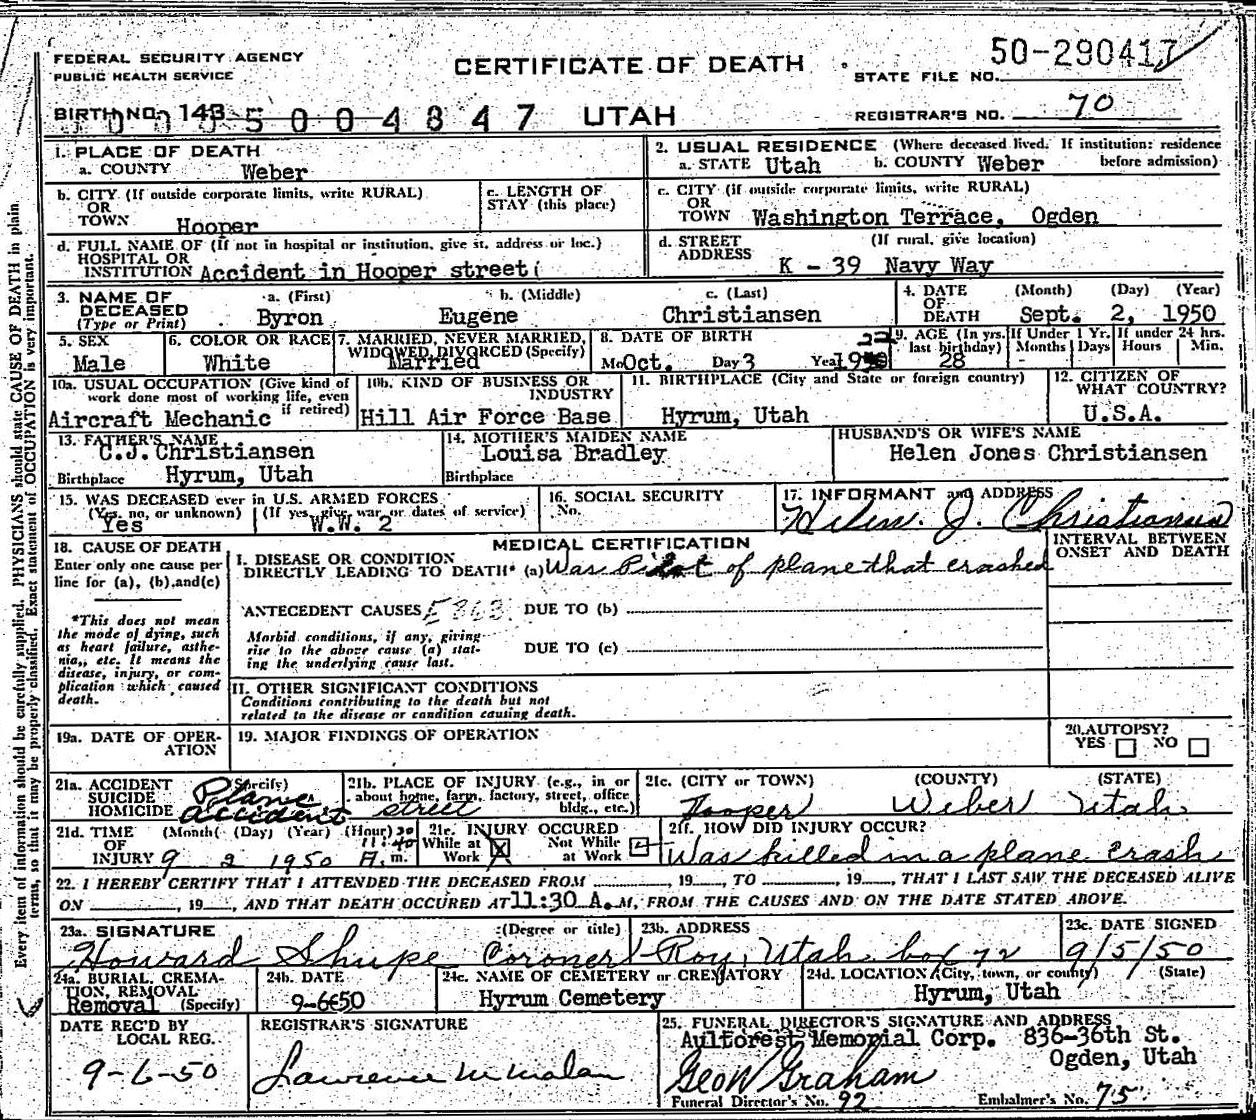 FEDERAL SECURITY AGENCY
PUBLIC HEALTH SERVICE
CERTIFICATE OF DEATH
STATE FILE NO. 50-290417
BIRTH NO. 143
5004847 UTAH
REGISTRAR'S NO. 70
1. PLACE OF DEATH
a. COUNTY Weber
2. USUAL RESIDENCE (Where deceased lived. If institution: residence before admission)
a. STATE Utah b. COUNTY Weber
b. CITY (If outside corporate limits, write RURAL)
OR
TOWN Hooper
c. LENGTH OF
STAY (this place)
c. CITY (if outside corporate limits, write RURAL)
OR
TOWN Washington Terrace, Ogden
d. FULL NAME OF (If not in hospital or institution, give st. address or loc.)
HOSPITAL OR
INSTITUTION Accident in Hooper street(
d. STREET (If rural, give location)
ADDRESS K - 39 Navy Way
3. NAME OF
DECEASED
(Type or Print)
a. (First) b. (Middle) c. (Last)
Byron Eugene Christiansen
4. DATE (Month) (Day) (Year)
OF
DEATH Sept. 2, 1950
5. SEX
Male
6. COLOR OR RACE
White
7. MARRIED, NEVER MARRIED,
WIDOWED, DIVORCED (Specify)
Married
8. DATE OF BIRTH
Mo Oct. Day 3 Year 22
9. AGE (In yrs. last birthday)
28
If Under 1 Yr.
Months Days
-
If under 24 hrs.
Hours Min.
10a. USUAL OCCUPATION (Give kind of
work done most of working life, even
if retired)
Aircraft Mechanic
10b. KIND OF BUSINESS OR
INDUSTRY
Hill Air Force Base
11. BIRTHPLACE (City and State or foreign country)
Hyrum, Utah
12. CITIZEN OF
WHAT COUNTRY?
U.S.A.
13. FATHER'S NAME
C.J.Christiansen
Birthplace Hyrum, Utah
14. MOTHER'S MAIDEN NAME
Louisa Bradley
Birthplace
HUSBAND'S OR WIFE'S NAME
Helen Jones Christiansen
15. WAS DECEASED ever in U.S. ARMED FORCES
(Yes, no, or unknown) (If yes, give war or dates of service)
Yes W.W. 2
16. SOCIAL SECURITY
No.
17. INFORMANT and ADDRESS
Helen. J. Christiansen
18. CAUSE OF DEATH
Enter only one cause per
line for (a), (b), and (c)
*This does not mean
the mode of dying, such
as heart failure, asthe-
nia, etc. It means the
disease, injury, or com-
plication which caused
death.
MEDICAL CERTIFICATION
INTERVAL BETWEEN
ONSET AND DEATH
I. DISEASE OR CONDITION
DIRECTLY LEADING TO DEATH* (a) Was Pilot of plane that crashed
ANTECEDENT CAUSES E863 DUE TO (b)
Morbid conditions, if any, giving
rise to the above cause (a) stat-
ing the underlying cause last.
DUE TO (c)
II. OTHER SIGNIFICANT CONDITIONS
Conditions contributing to the death but not
related to the disease or condition causing death.
19a. DATE OF OPER-
ATION
19. MAJOR FINDINGS OF OPERATION
20. AUTOPSY?
YES NO
21a. ACCIDENT (Specify)
SUICIDE
HOMICIDE
Plane
accident
21b. PLACE OF INJURY (e.g., in or
about home, farm, factory, street, office
bldg., etc.)
street
21c. (CITY or TOWN) (COUNTY) (STATE)
Hooper Weber Utah
21d. TIME (Month) (Day) (Year) (Hour)
OF
INJURY 9 2 1950 A.m.
21e. INJURY OCCURED
While at Work X
Not While at Work
21f. HOW DID INJURY OCCUR?
Was killed in a plane crash
22. I HEREBY CERTIFY THAT I ATTENDED THE DECEASED FROM , 19 , TO , 19 , THAT I LAST SAW THE DECEASED ALIVE
ON , 19 , AND THAT DEATH OCCURED AT 11:30 A.M, FROM THE CAUSES AND ON THE DATE STATED ABOVE.
23a. SIGNATURE (Degree or title)
Howard Shupe Coroner
23b. ADDRESS
Roy, Utah box 72
23c. DATE SIGNED
9/5/50
24a. BURIAL, CREMA-
TION, REMOVAL
(Specify)
Removal
24b. DATE
9-6-50
24c. NAME OF CEMETERY or CREMATORY
Hyrum Cemetery
24d. LOCATION (City, town, or county) (State)
Hyrum, Utah
DATE REC'D BY
LOCAL REG.
9-6-50
REGISTRAR'S SIGNATURE
Lawrence M Malan
25. FUNERAL DIRECTOR'S SIGNATURE AND ADDRESS
Aultorest Memorial Corp. 836-36th St.
Ogden, Utah
Geo W Graham
Funeral Director's No. 92 Embalmer's No. 75
Every item of information should be carefully supplied. PHYSICIANS should state CAUSE OF DEATH in plain
terms, so that it may be properly classified. Exact statement of OCCUPATION is very important.